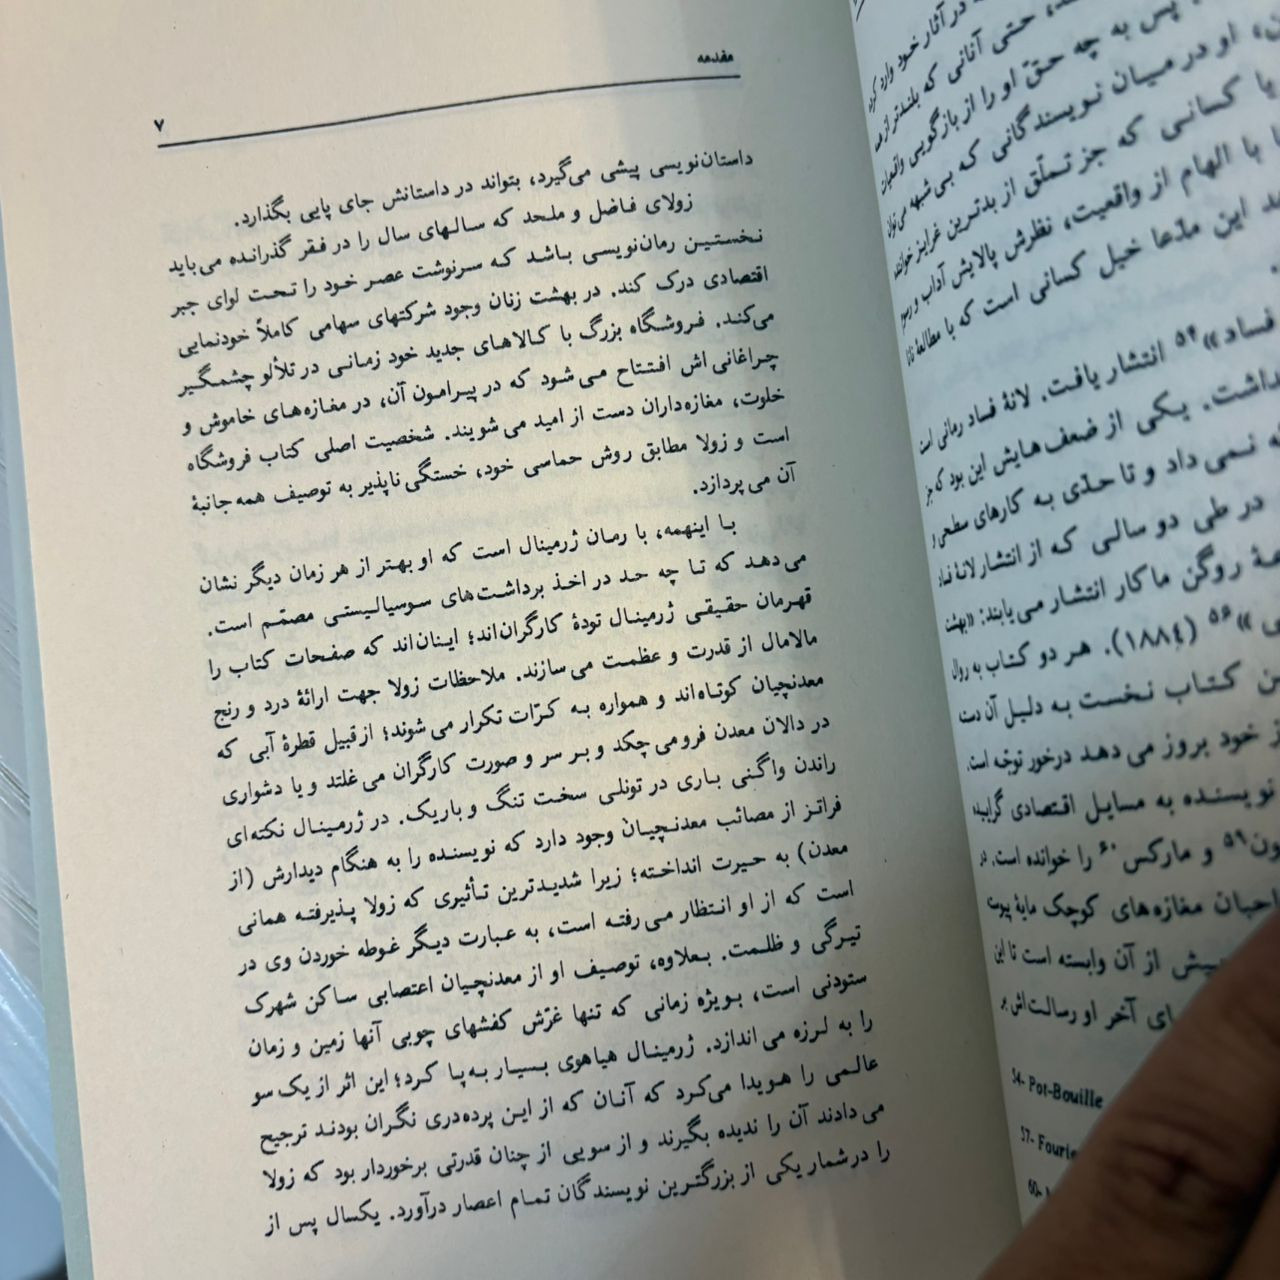 مقدمه
۷
داستان‌نویسی پیشی می‌گیرد، بتواند در داستانش جای پایی بگذارد.
زولای فاضل و ملحد که سالهای سال را در فقر گذرانده می‌باید
نخستین رمان‌نویسی باشد که سرنوشت عصر خود را تحت لوای جبر
اقتصادی درک کند. در بهشت زنان وجود شرکتهای سهامی کاملاً خودنمایی
می‌کند. فروشگاه بزرگ با کالاهای جدید خود زمانی در تلألو چشمگیر
چراغانی‌اش افتتاح می‌شود که در پیرامون آن، در مغازه‌های خاموش و
خلوت، مغازه‌داران دست از امید می‌شویند. شخصیت اصلی کتاب فروشگاه
است و زولا مطابق روش حماسی خود، خستگی‌ناپذیر به توصیف همه‌جانبهٔ
آن می‌پردازد.
با اینهمه، با رمان ژرمینال است که او بهتر از هر زمان دیگر نشان
می‌دهد که تا چه حد در اخذ برداشت‌های سوسیالیستی مصمّم است.
قهرمان حقیقی ژرمینال تودهٔ کارگران‌اند؛ اینان‌اند که صفحات کتاب را
مالامال از قدرت و عظمت می‌سازند. ملاحظات زولا جهت ارائهٔ درد و رنج
معدنچیان کوتاه‌اند و همواره به کرّات تکرار می‌شوند؛ از قبیل قطرهٔ آبی که
در دالان معدن فرو می‌چکد و بر سر و صورت کارگران می‌غلتد و یا دشواری
راندن واگنی باری در تونلی سخت تنگ و باریک. در ژرمینال نکته‌ای
فراتر از مصائب معدنچیان وجود دارد که نویسنده را به هنگام دیدارش (از
معدن) به حیرت انداخته؛ زیرا شدیدترین تأثیری که زولا پذیرفته همانی
است که از او انتظار می‌رفته است، به عبارت دیگر غوطه خوردن وی در
تیرگی و ظلمت. بعلاوه، توصیف او از معدنچیان اعتصابی ساکن شهرک
ستودنی است، بویژه زمانی که تنها غرّش کفشهای چوبی آنها زمین و زمان
را به لرزه می‌اندازد. ژرمینال هیاهوی بسیار به‌پا کرد؛ این اثر از یک سو
عالمی را هویدا می‌کرد که آنان که از این پرده‌دری نگران بودند ترجیح
می‌دادند آن را ندیده بگیرند و از سویی از چنان قدرتی برخوردار بود که زولا
را در شمار یکی از بزرگترین نویسندگان تمام اعصار درآورد. یکسال پس از
در آثار خود وارد کرد
حتی آنانی که بلندتر از همه
پس به چه حقّ او را از بازگویی واقعیات
او در میان نویسندگانی که بی‌شبهه می‌توان
یا کسانی که جز تملّق از بدترین غرایز خوانند
با الهام از واقعیت، نظرش پالایش آداب و رسوم
این مدّعا خیل کسانی است که با مطالعهٔ
فساد»۵۴ انتشار یافت. لانهٔ فساد رمانی است
داشت. یکی از ضعف‌هایش این بود که جز
نمی‌داد و تا حدّی به کارهای سطحی و
در طی دو سالی که از انتشار لانهٔ فساد
روگن ماکار انتشار می‌یابند: «بهشت
»۵۶ (۱۸۸٤). هر دو کتاب به روال
کتاب نخست به دلیل آن دست
از خود بروز می‌دهد درخور توجّه است.
نویسنده به مسایل اقتصادی گراییده
۵۹ و مارکس۶۰ را خوانده است. در
مغازه‌های کوچک مایهٔ پیوست
بیش از آن وابسته است تا این
آخر او رسالت‌اش بر
54- Pot-Bouille
57- Fourie
60-